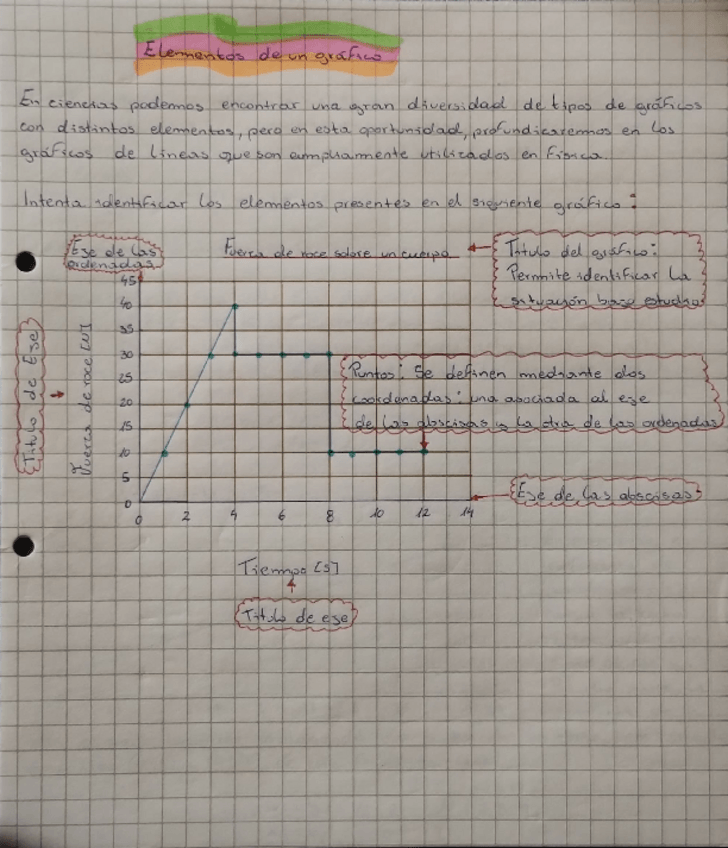 Elementos de un gráfico
En ciencias podemos encontrar una gran diversidad de tipos de gráficos
con distintos elementos, pero en esta oportunidad, profundicaremos en los
gráficos de líneas que son ampliamente utilizados en física.
Intenta identificar los elementos presentes en el siguiente gráfico:
Eje de las
ordenadas
Fuerza de roce sobre un cuerpo
Título del gráfico:
Permite identificar la
situación base estudio
45
40
35
30
25
20
15
10
5
0
Título de Eje
Fuerza de roce [N]
Puntos: Se definen mediante dos
coordenadas: una asociada al eje
de las abscisas y la otra de las ordenadas
Eje de las abscisas
0 2 4 6 8 10 12 14
Tiempo [s]
Título de eje